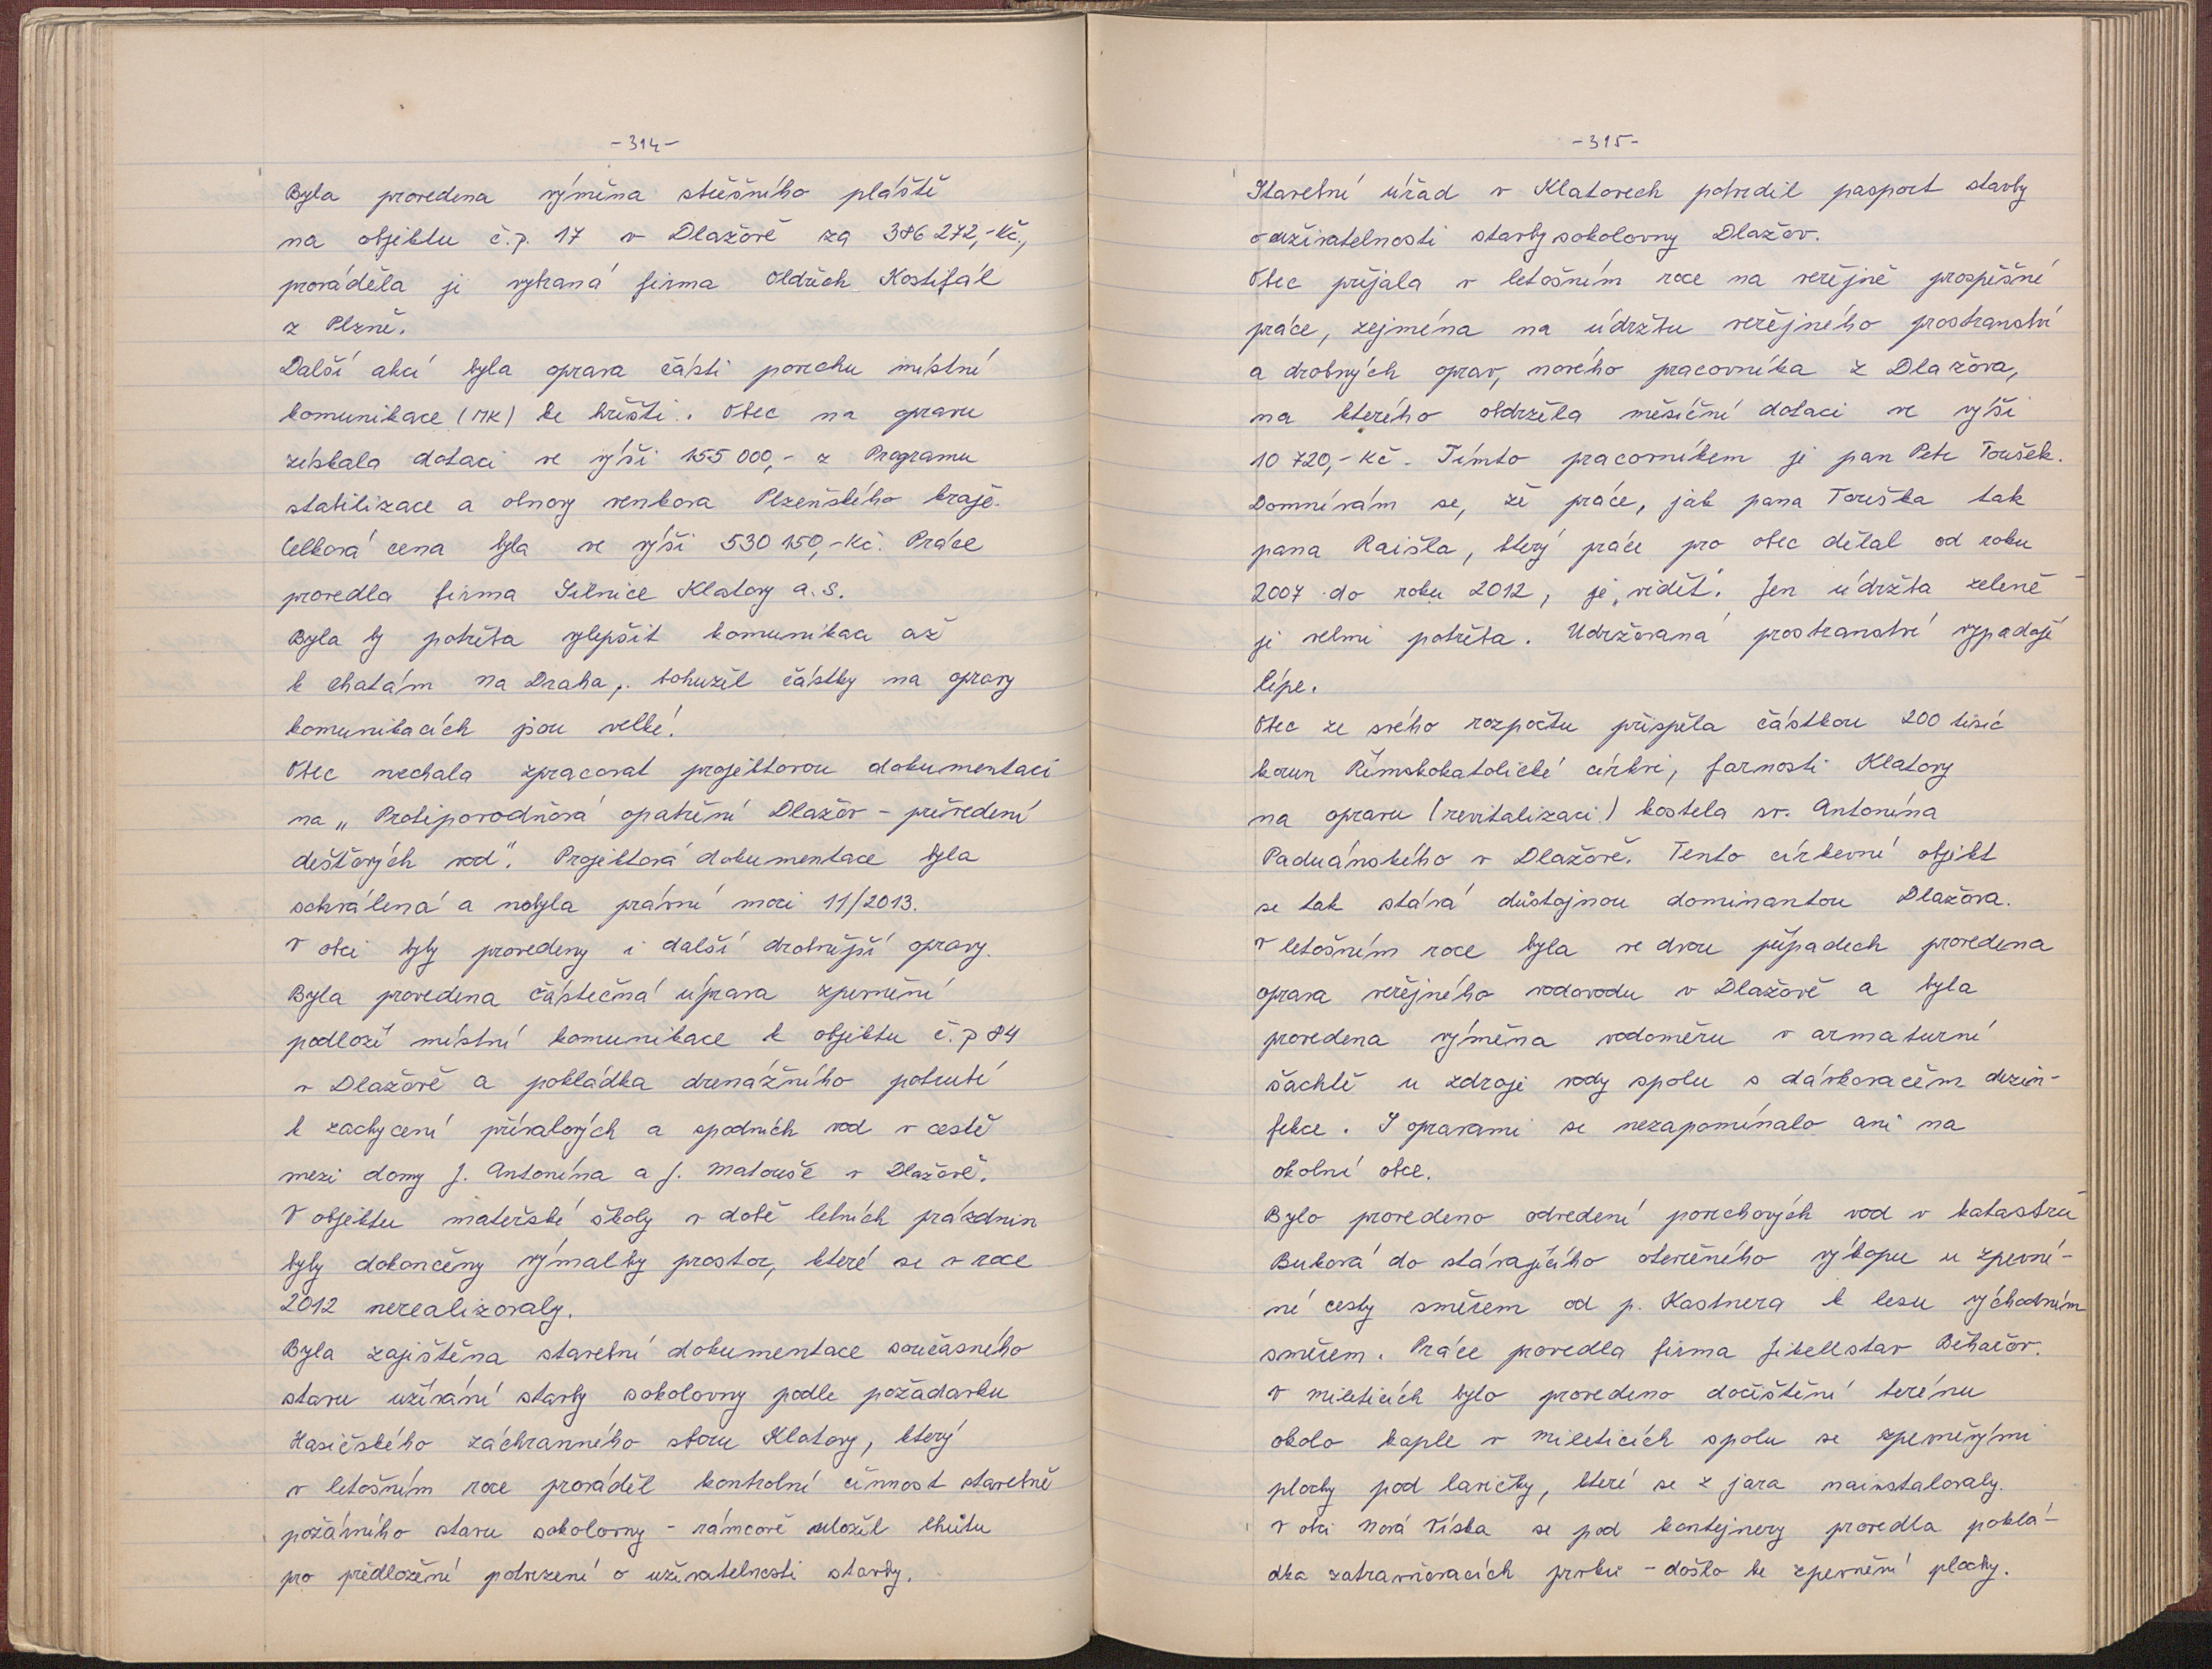 -314-
Byla provedena výměna střešního pláště
na objektu č.p. 17 v Dlažově za 386 272,-Kč.,
prováděla ji vybraná firma Oldřich Kostifál
z Plzně.
Další akcí byla oprava části povrchu místní
komunikace (MK) ke hřišti. Obec na opravu
získala dotaci ve výši 155 000,- z Programu
stabilizace a obnovy venkova Plzeňského kraje.
Celková cena byla ve výši 530 150,-Kč. Práce
provedla firma Silnice Klatovy a.s.
Byla by potřeba vylepšit komunikaci až
k chatám Na Draha, bohužel částky na opravy
komunikacích jsou velké!
Obec nechala zpracovat projektovou dokumentaci
na „Protipovodňová opatření Dlažov - převedení
dešťových vod". Projektová dokumentace byla
schválená a nabyla právní moci 11/2013.
V obci byly provedeny i další drobnější opravy.
Byla provedena částečná úprava zpevnění
podloží místní komunikace k objektu č.p 84
v Dlažově a pokládka drenážního potrubí
k zachycení přívalových a spodních vod v cestě
mezi domy J. Antonína a J. Matouše v Dlažově.
V objektu mateřské školy v době letních prázdnin
byly dokončeny výmalby prostor, které se v roce
2012 nerealizovaly.
Byla zajištěna stavební dokumentace současného
stavu užívání stavby sokolovny podle požadavku
Hasičského záchranného sboru Klatovy, který
v letošním roce prováděl kontrolní činnost stavebně
požárního stavu sokolovny - rámcově uložil lhůtu
pro předložení potvrzení o uživatelnosti stavby.
-315-
Stavební úřad v Klatovech potvrdil pasport stavby
o uživatelnosti stavby sokolovny Dlažov.
Obec přijala v letošním roce na veřejně prospěšné
práce, zejména na údržbu veřejného prostranství
a drobných oprav, nového pracovníka z Dlažova,
na kterého obdržela měsíční dotaci ve výši
10 720,-Kč. Tímto pracovníkem je pan Petr Toušek.
Domnívám se, že práce, jak pana Touška tak
pana Raišla, který práce pro obec dělal od roku
2007 do roku 2012, je „vidět". Jen údržba zeleně
je velmi potřeba. Udržovaná prostranství vypadají
lépe.
Obec ze svého rozpočtu přispěla částkou 200 tisíc
korun Římskokatolické církvi, farnosti Klatovy
na opravu (revitalizaci) kostela sv. Antonína
Paduánského v Dlažově. Tento církevní objekt
se tak stává důstojnou dominantou Dlažova.
V letošním roce byla ve dvou případech provedena
oprava veřejného vodovodu v Dlažově a byla
provedena výměna vodoměru v armaturní
šachtě u zdroje vody spolu s dávkovačem dezin-
fekce. S opravami se nezapomínalo ani na
okolní obce.
Bylo provedeno odvedení povrchových vod v katastru
Buková do stávajícího otevřeného výkopu u zpevně-
né cesty směrem od p. Kastnera k lesu východním
směrem. Práce provedla firma Jikellstav Běhařov.
V Mileticích bylo provedeno dočištění terénu
okolo kaple v Mileticích spolu se zpevněnými
plochy pod lavičky, které se z jara nainstalovaly.
V obci Nová Víska se pod kontejnery provedla poklá-
dka zatravňovacích prvků - došlo ke zpevnění plochy.